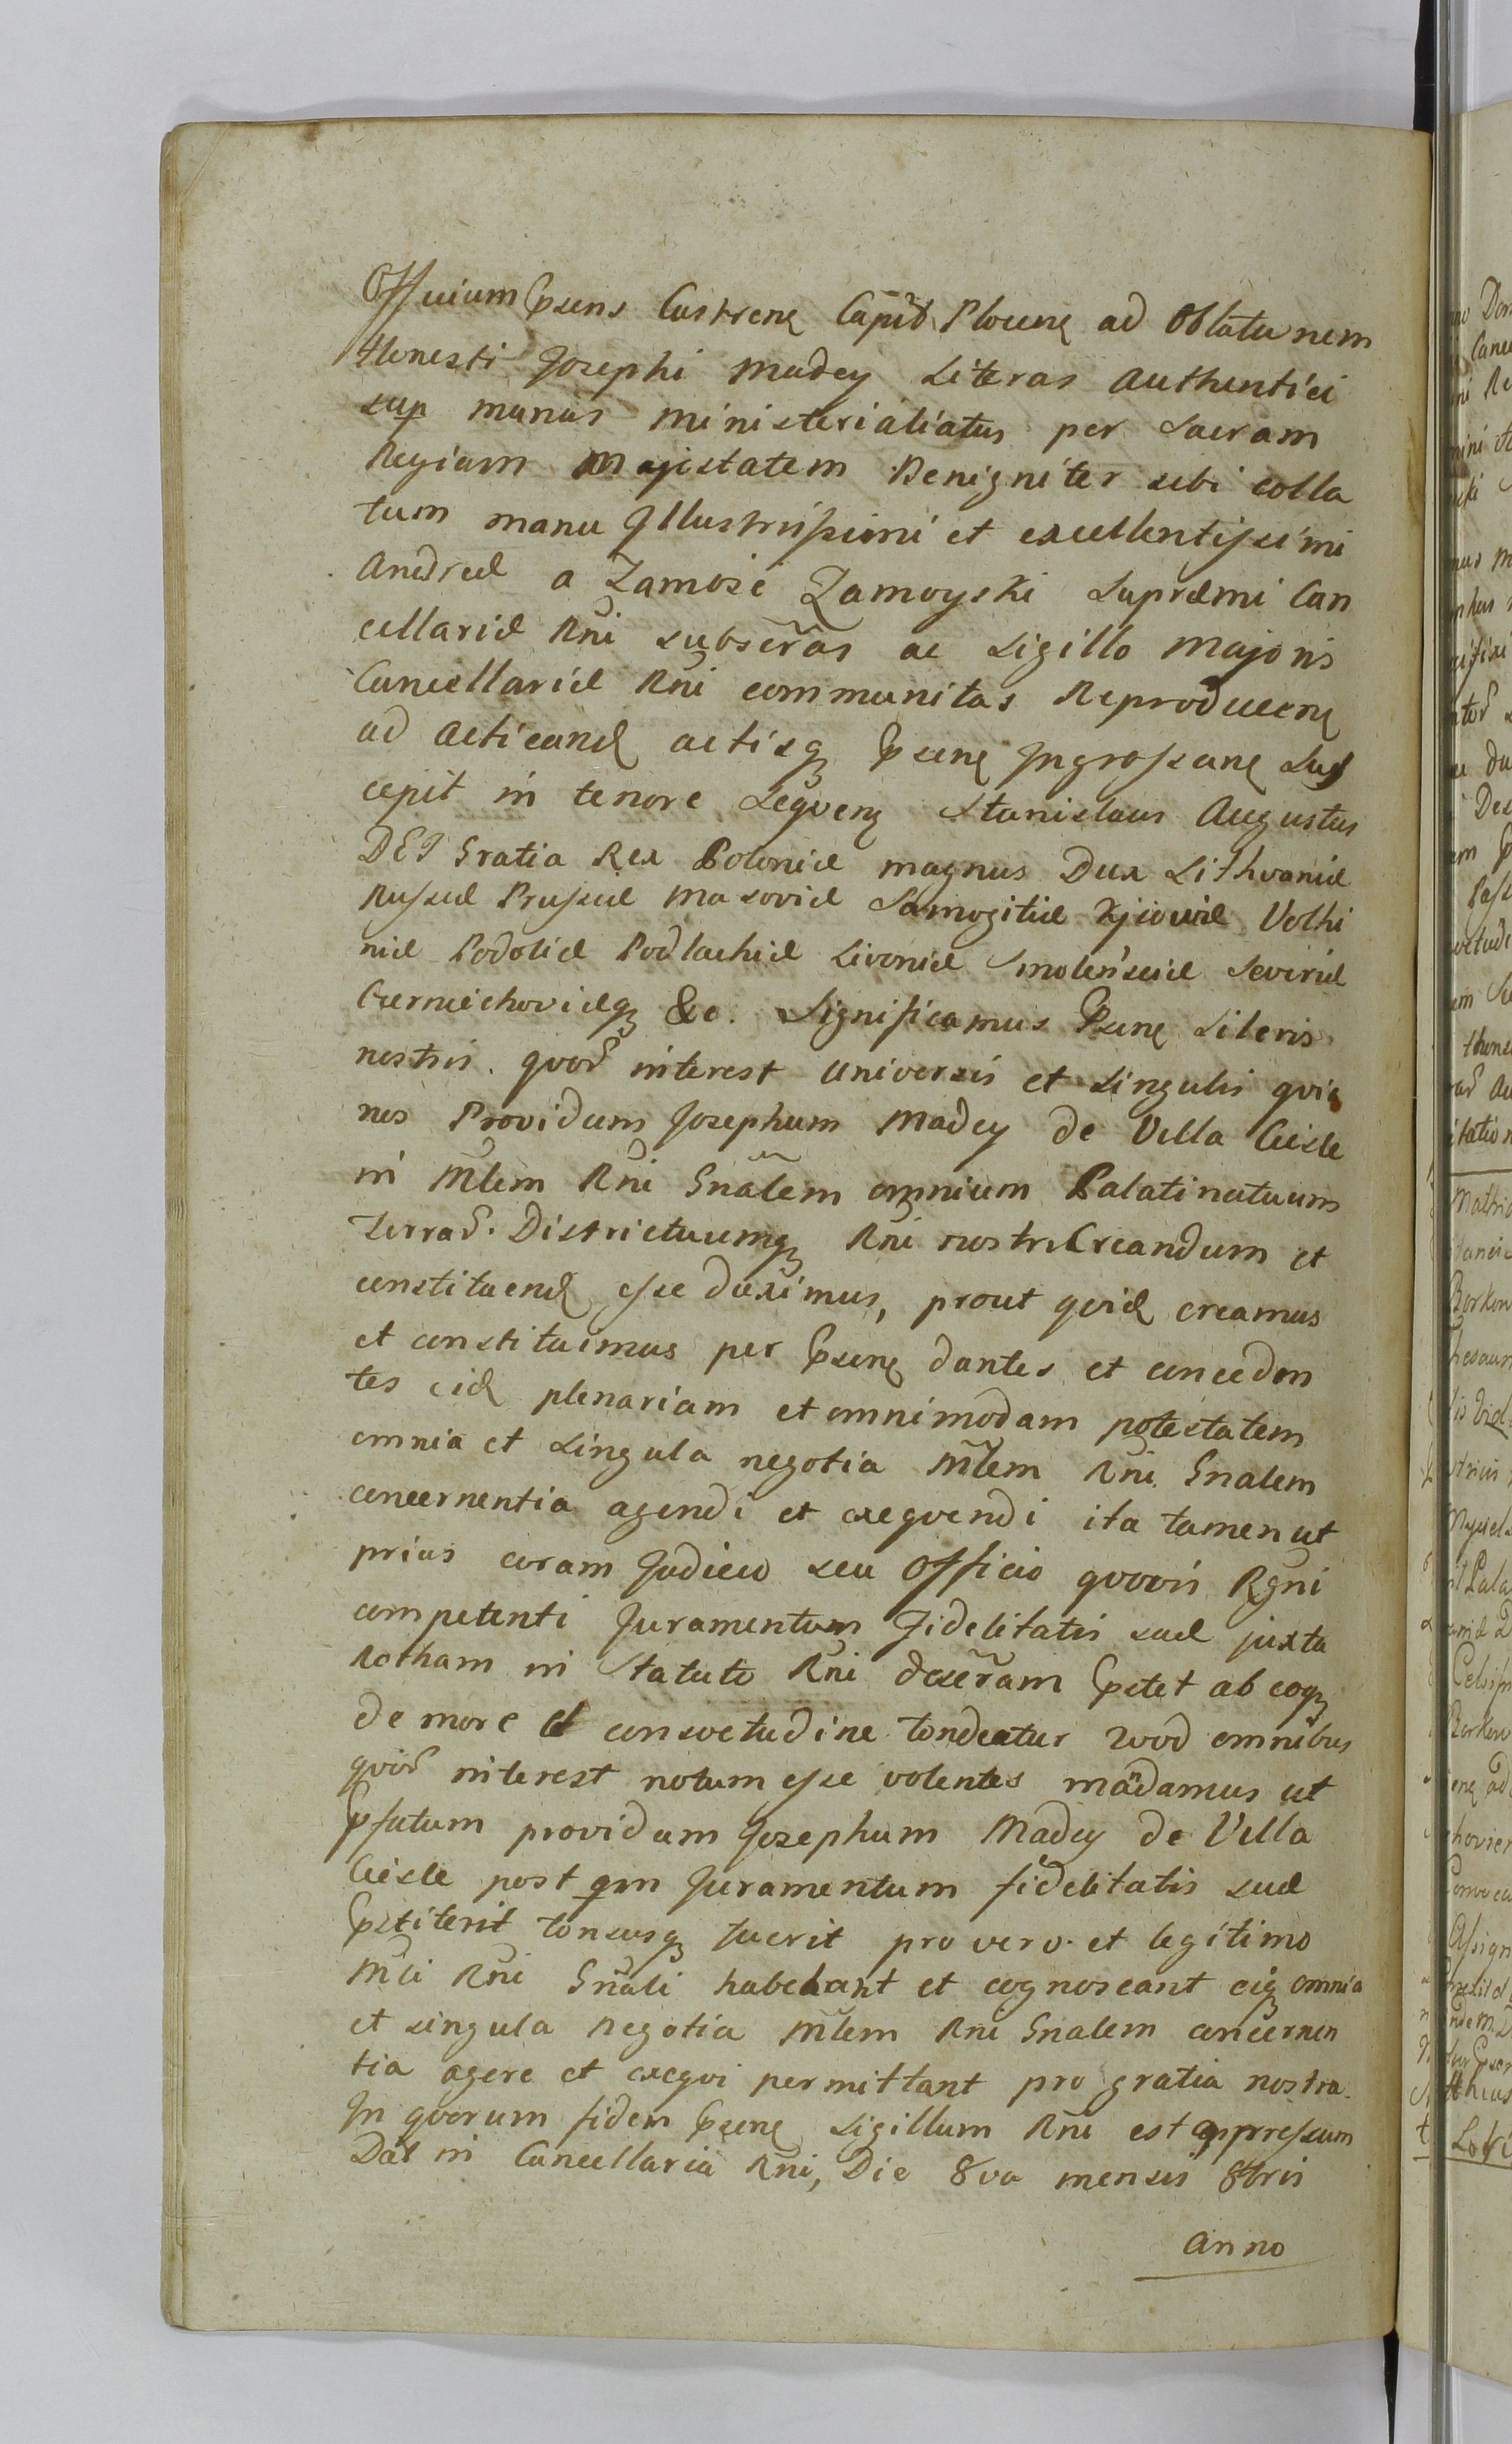 Officium Psens Castrenę Capit̃ Plocenę ad Oblatu nem
Honesti Josephi Madey Literas Authentici
sup munus Ministerialiatus per Sacram
Regiam Majestatem Benigniter sibi colla
tum manu Jllustrissimi et excellentissimi
Andreæ a Zamosc Zamoyski Supræmi Can
cellariæ Rñi subscr̃as ac Sigillo Majoris
Cancellariæ Rñi communitas Reproducenę
ad acticandę actisq psenę Jngrossanę Sus
cepit in tenore Seqvenę Stanislaus Augustus
DEI Gratia Rex Poloniæ magnus Dux Lithvaniæ
Russiæ Prussiæ Masoviæ Samogitiæ Kijoviæ Volhi
niæ Podoliæ Podlachiæ Livoniæ Smolensciæ Severiæ
Czerniechoviæq &c. Significamus Psenę Literis
nostris. qvor̃ interest Universis et Singulis qvia
nos Providum Josephum Madey de Villa Ciesle
in Mlem Rñi Gnãlem omnium Palatinatuum
Terrar̃. Districtuumq Rñi nostri Creandum et
constituendę esse duximus, prout qvidę creamus
et constituimus per Psenę dantes et conceden
tes eidę plenariam et omnimodam potestatem
omnia et Singula negotia Mlem Rñi Gnalem
concernentia agendi et exeqvendi ita tamen ut
prius coram Judicio seu Officio qvovis Rgni
competenti Juramentum Fidelitatis suæ juxta
Rotham in Statuto Rñi descr̃am Pstet ab eoq
de more et consvetudine tondeatur Qvod omnibus
qvor̃ interest notum esse volentes mandamus ut
Psfatum providum Josephum Madey de Villa
Ciesle post qm Juramentum fidelitatis suæ
Pstiterit tonsusq fuerit pro vero et legitimo
Mli Rñi Gnãli habeant et cognoscant eiq omnia
et singula Negotia Mlem Rñi Gnalem concernen
tia agere et exeqvi permittant pro gratia nostra.
Jn qvorum fidem Psenę Sigillum Rñi est appressum
Dat in Cancellaria Rñi, Die 8va mensis 8bris
Anno